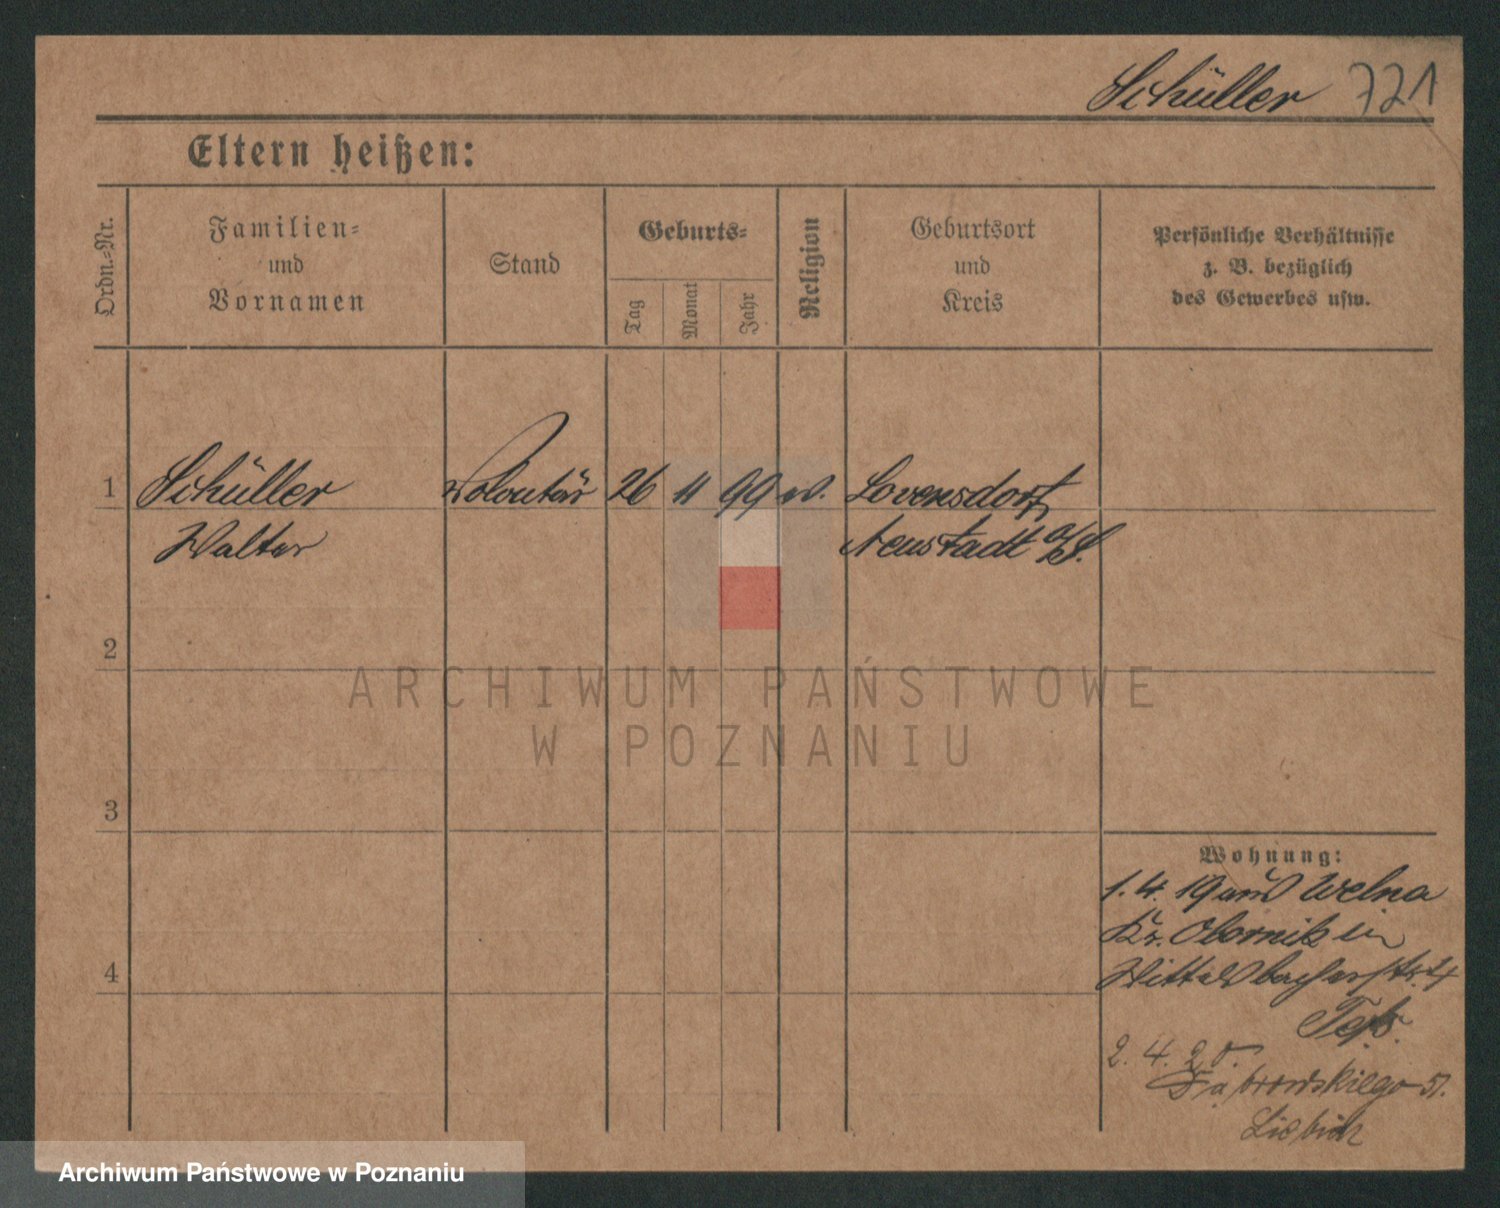 Schüller 721
Eltern heißen:
Ordn.-Nr.
Familien-
und
Vornamen
Stand
Geburts-
Tag
Monat
Jahr
Religion
Geburtsort
und
Kreis
Persönliche Verhältnisse
z. B. bezüglich
des Gewerbes usw.
1 Schüller Volontär 26 11 99 ev.
Walter Neustadt
2
3
4
ARCHIWUM PAŃSTWOWE
W POZNANIU
Wohnung:
1. 4. 19 aus Welna
Kr. Obornik in
Wittelsbacherstr.
2. 4. 20.
Dąbrowskiego 51.
Archiwum Państwowe w Poznaniu